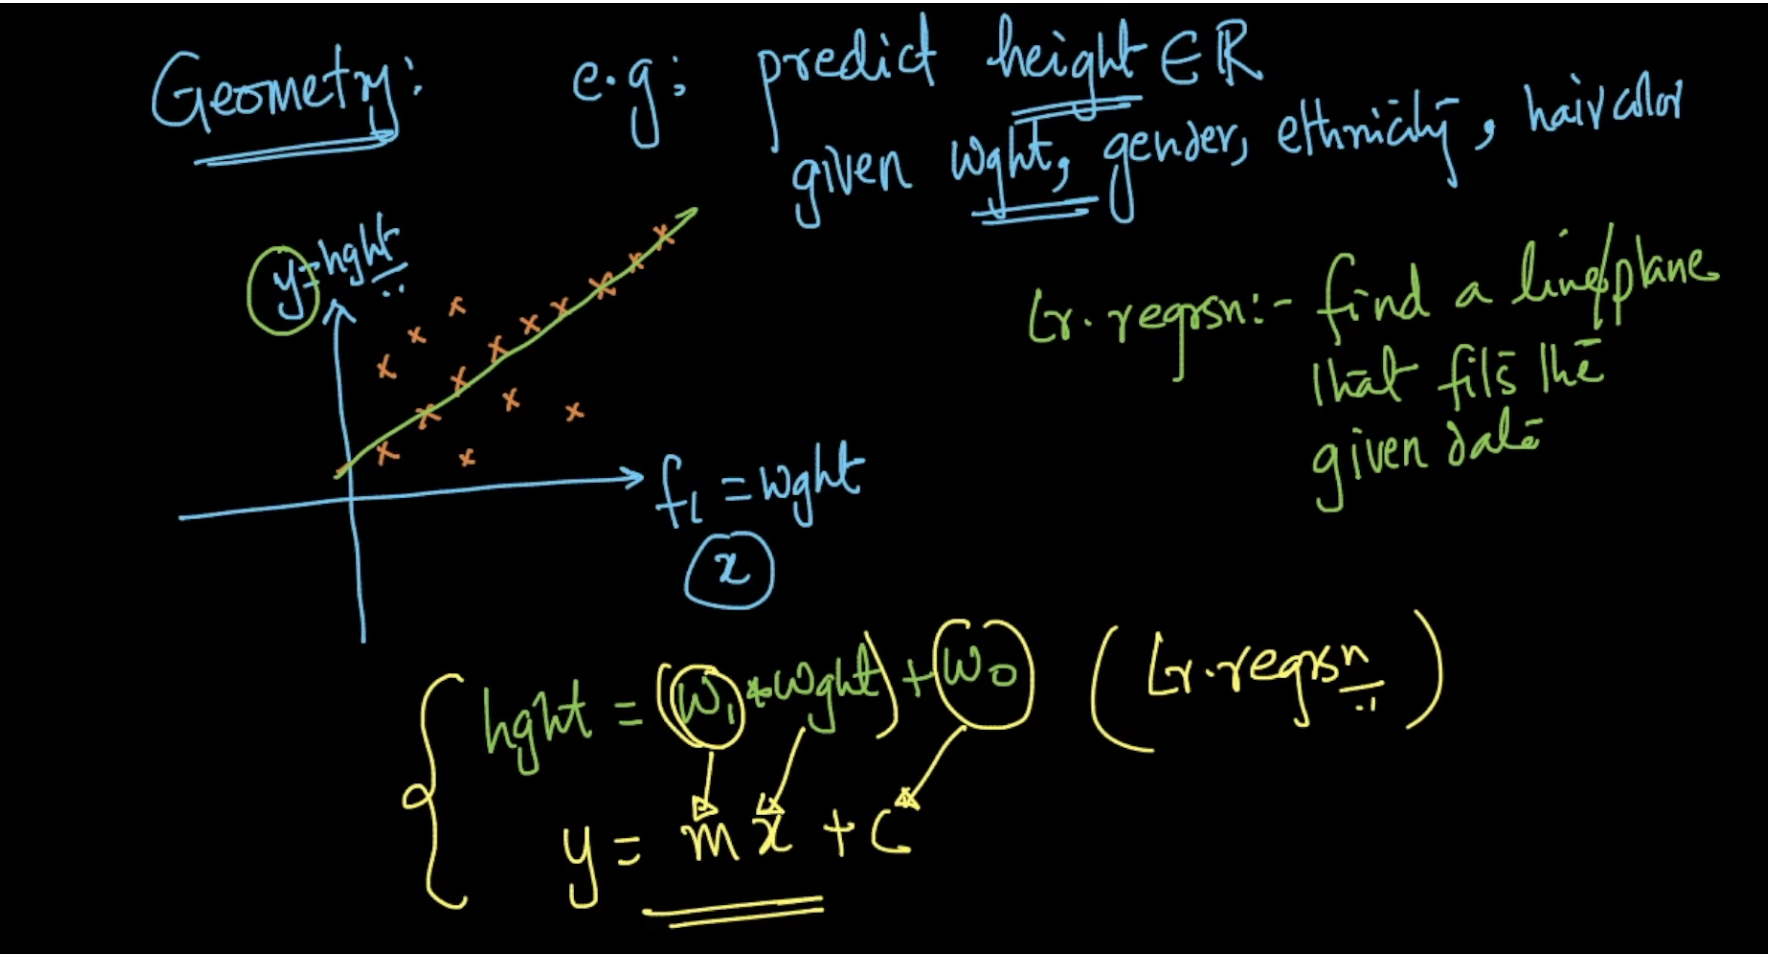 Geometry: e.g: predict height ∈ ℝ
given wght, gender, ethnicity, hair color
y = hght
Lr. regrsn:- find a line/plane
that fits the
given data
f₁ = wght
x
hght = (w₁ * wght) + w₀ (Lr. regrsn)
y = mx + c